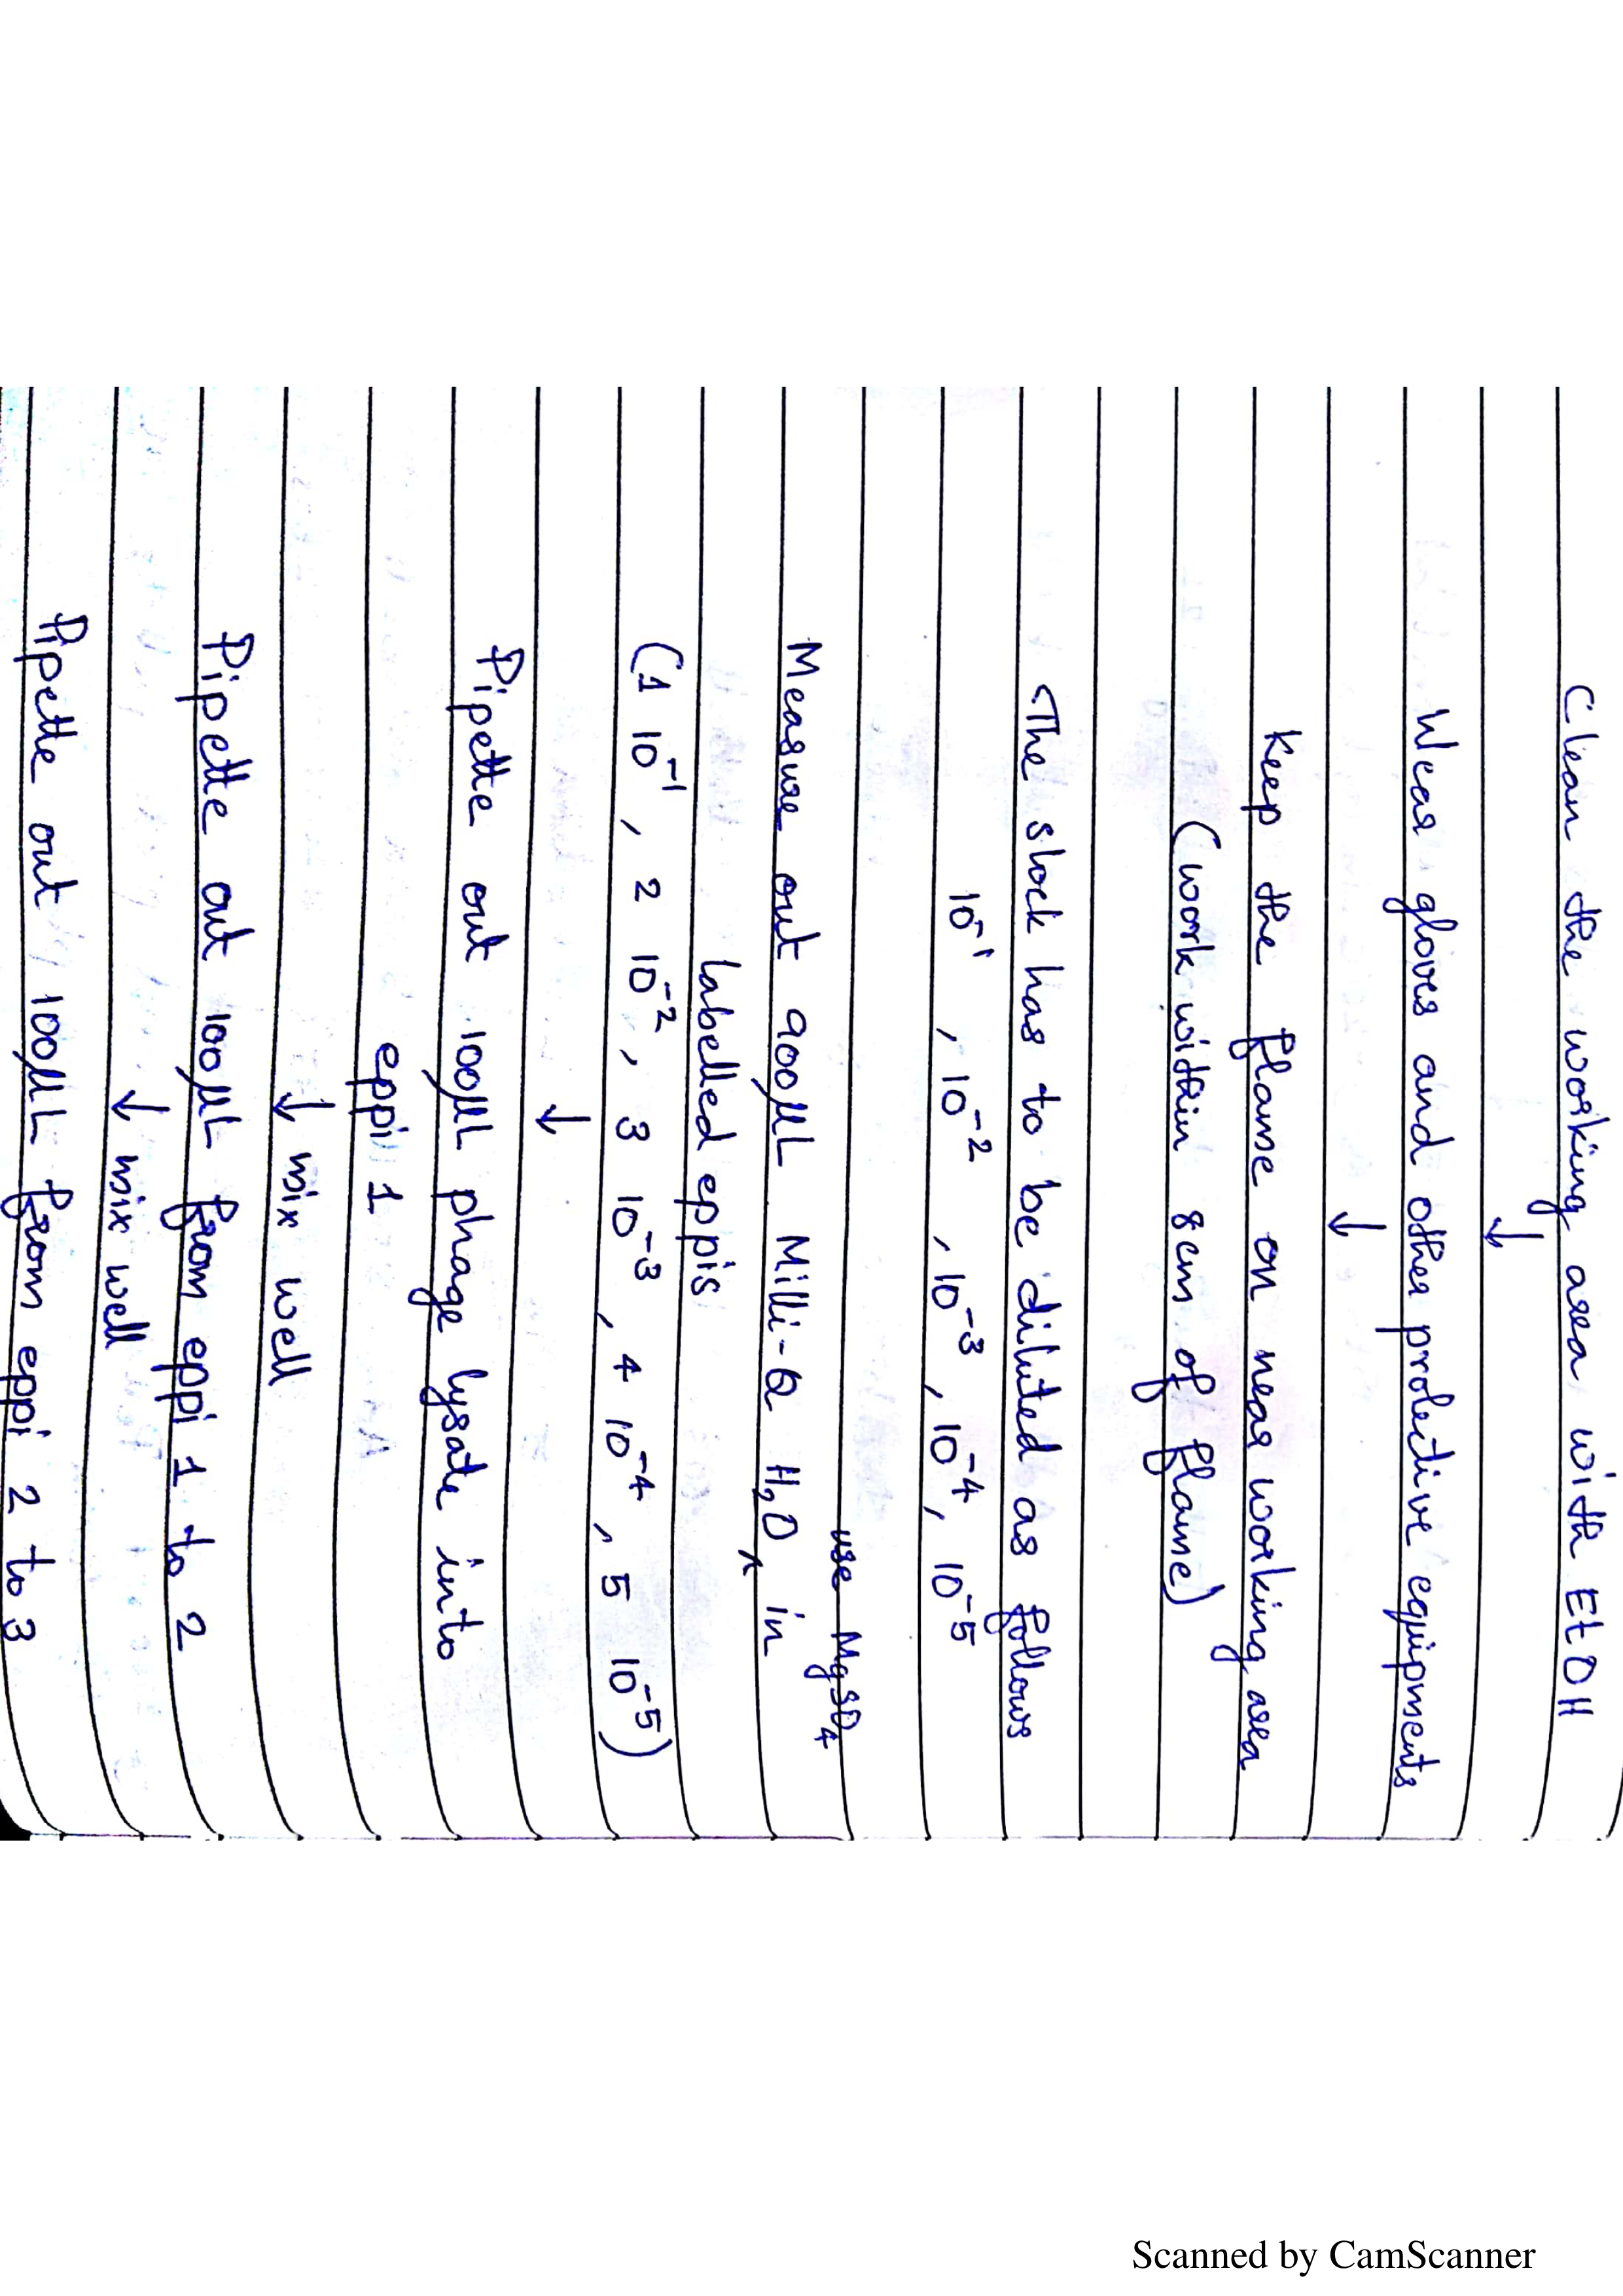 Clean the working area with EtOH
↓
Wear gloves and other protective equipments
↓
Keep the flame on near working area
(work within 8cm of flame)
The stock has to be diluted as follows
10⁻¹, 10⁻², 10⁻³, 10⁻⁴, 10⁻⁵
use MgSO₄
Measure out 900μL Milli-Q H₂O ^ in
labelled eppis
(1 10⁻¹, 2 10⁻², 3 10⁻³, 4 10⁻⁴, 5 10⁻⁵)
↓
Pipette out 100μL phage lysate into
eppi 1
↓ mix well
Pipette out 100μL from eppi 1 to 2
↓ mix well
Pipette out 100μL from eppi 2 to 3
Scanned by CamScanner